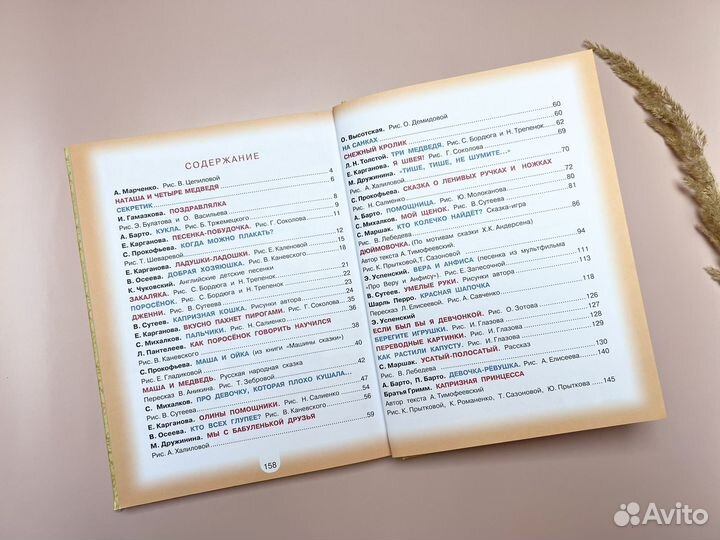 СОДЕРЖАНИЕ
А. Марченко. Рис. В. Цепиловой
НАТАША И ЧЕТЫРЕ МЕДВЕДЯ 4
СЕКРЕТИК 6
И. Гамазкова. ПОЗДРАВЛЯЛКА
Рис. Э. Булатова и О. Васильева 8
А. Барто. КУКЛА. Рис. Б. Тржемецкого 9
Е. Карганова. ПЕСЕНКА-ПОБУДОЧКА. Рис. Г. Соколова 11
С. Прокофьева. КОГДА МОЖНО ПЛАКАТЬ?
Рис. Т. Шеваревой 12
Е. Карганова. ЛАДУШКИ-ЛАДОШКИ. Рис. Е. Каленовой 15
В. Осеева. ДОБРАЯ ХОЗЯЮШКА. Рис. В. Каневского 18
К. Чуковский. Английские детские песенки
ЗАКАЛЯКА. Рис. С. Бордюга и Н. Трепенок 21
ПОРОСЁНОК. Рис. С. Бордюга и Н. Трепенок 22
ДЖЕННИ. Рис. В. Сутеева 24
В. Сутеев. КАПРИЗНАЯ КОШКА. Рисунки автора
Е. Карганова. ВКУСНО ПАХНЕТ ПИРОГАМИ. Рис. Г. Соколова 35
С. Михалков. ПАЛЬЧИКИ. Рис. Н. Салиенко 36
Л. Пантелеев. КАК ПОРОСЁНОК ГОВОРИТЬ НАУЧИЛСЯ
Рис. В. Каневского 38
С. Прокофьева. МАША И ОЙКА (из книги «Машины сказки»)
Рис. Е. Гладиковой 40
МАША И МЕДВЕДЬ. Русская народная сказка
Пересказ В. Аникина. Рис. Т. Зебровой 42
С. Михалков. ПРО ДЕВОЧКУ, КОТОРАЯ ПЛОХО КУШАЛА...
Рис. В. Сутеева 54
Е. Карганова. ОЛИНЫ ПОМОЩНИКИ. Рис. Н. Салиенко 56
В. Осеева. КТО ВСЕХ ГЛУПЕЕ? Рис. В. Каневского 57
М. Дружинина. МЫ С БАБУЛЕНЬКОЙ ДРУЗЬЯ
Рис. А. Халиловой 59
158
О. Высотская. Рис. О. Демидовой
НА САНКАХ 60
СНЕЖНЫЙ КРОЛИК 60
Л. Н. Толстой. ТРИ МЕДВЕДЯ. Рис. С. Бордюга и Н. Трепенок 62
Е. Карганова. Я ШВЕЯ! Рис. Г. Соколова 69
М. Дружинина. «ТИШЕ, ТИШЕ, НЕ ШУМИТЕ...»
Рис. А. Халиловой 70
С. Прокофьева. СКАЗКА О ЛЕНИВЫХ РУЧКАХ И НОЖКАХ
Рис. Н. Салиенко 72
А. Барто. ПОМОЩНИЦА. Рис. Ю. Молоканова 80
С. Михалков. МОЙ ЩЕНОК. Рис. В. Сутеева
С. Маршак. КТО КОЛЕЧКО НАЙДЁТ? Сказка-игра
Рис. В. Лебедева
ДЮЙМОВОЧКА. (По мотивам сказки Х.К. Андерсена)
Автор текста А. Тимофеевский.
Рис. К. Прытковой, Т. Сазоновой 94
Э. Успенский. ВЕРА И АНФИСА (песенка из мультфильма
«Про Веру и Анфису»). Рис. Е. Запесочной 111
В. Сутеев. УМЕЛЫЕ РУКИ. Рисунки автора 113
Шарль Перро. КРАСНАЯ ШАПОЧКА
Пересказ Л. Елисеевой. Рис. А. Савченко 118
Э. Успенский
ЕСЛИ БЫЛ БЫ Я ДЕВЧОНКОЙ. Рис. О. Зотова 126
БЕРЕГИТЕ ИГРУШКИ. Рис. И. Глазова 127
ПЕРЕВОДНЫЕ КАРТИНКИ. Рис. И. Глазова
КАК РАСТИЛИ КАПУСТУ. Рис. И. Глазова 129
С. Маршак. УСАТЫЙ-ПОЛОСАТЫЙ. Рассказ
Рис. В. Лебедева 130
А. Барто, П. Барто. ДЕВОЧКА-РЁВУШКА. Рис. А. Елисеева 140
Братья Гримм. КАПРИЗНАЯ ПРИНЦЕССА
Автор текста А. Тимофеевский
Рис. К. Прытковой, К. Романенко, Т. Сазоновой, Ю. Прыткова 145
Avito